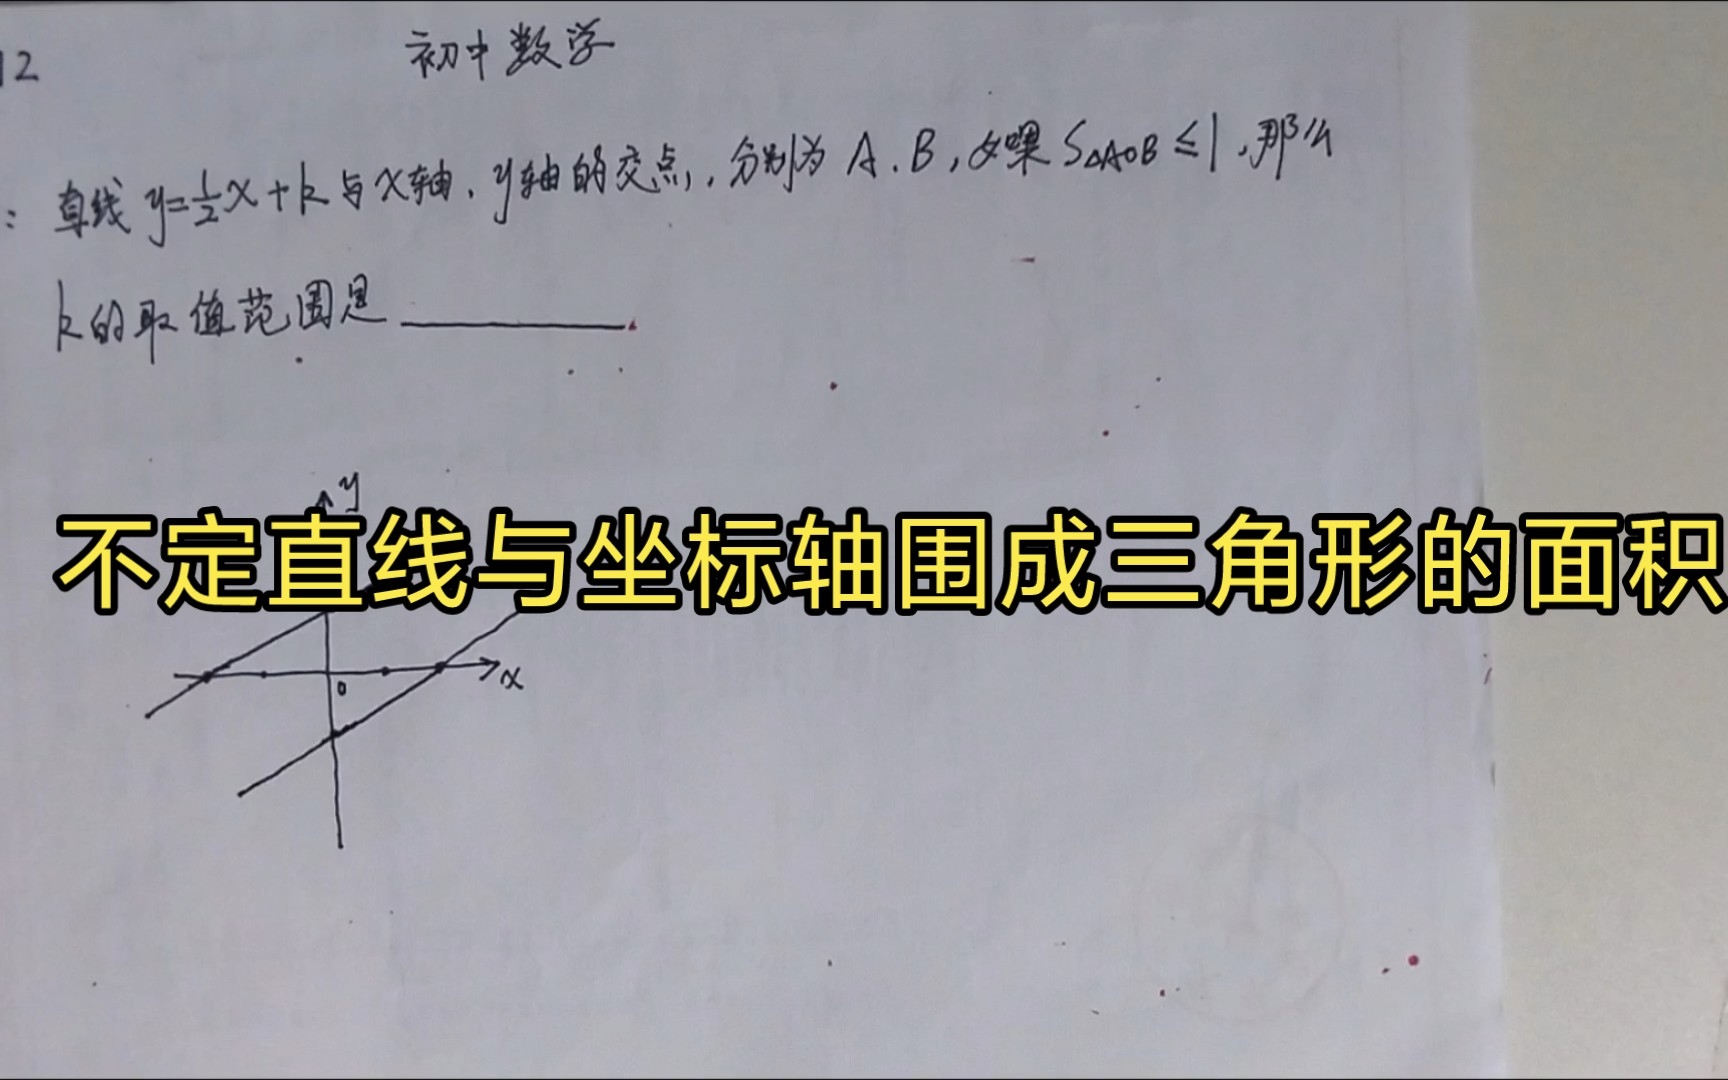 12
初中数学
: 直线 y=1/2x+k与x轴、y轴的交点,分别为 A、B,如果 S△AOB≤1,那么
k的取值范围是________.
y
不定直线与坐标轴围成三角形的面积
0
x